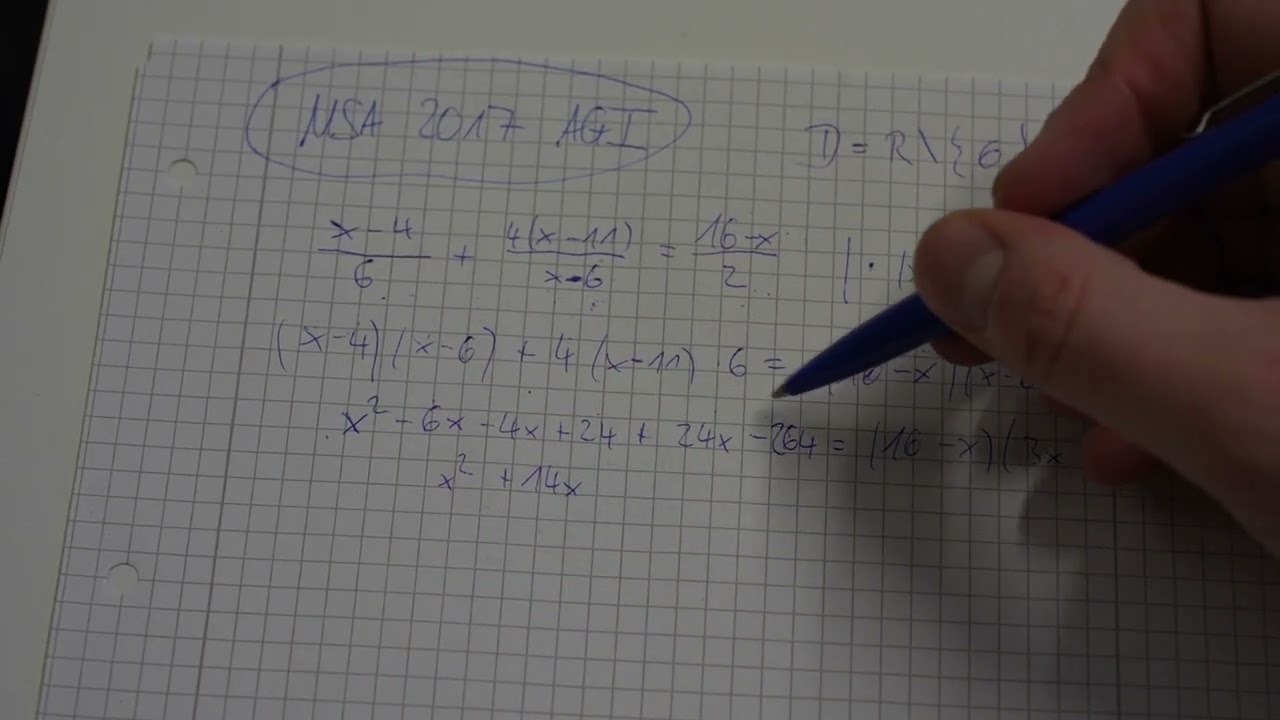 MSA 2017 AGI
D = R \ { 6 }
x-4/6 + 4(x-11)/x-6 = 16-x/2 | ·
(x-4)(x-6) + 4(x-11)·6 = (16-x)(x-
x² - 6x - 4x + 24 + 24x - 264 = (16-x)(3x
x² + 14x